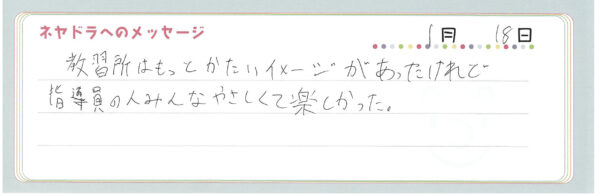 ネヤドラへのメッセージ
1月 18日
教習所はもっとかたいイメージがあったけれど
指導員の人みんなやさしくて楽しかった。